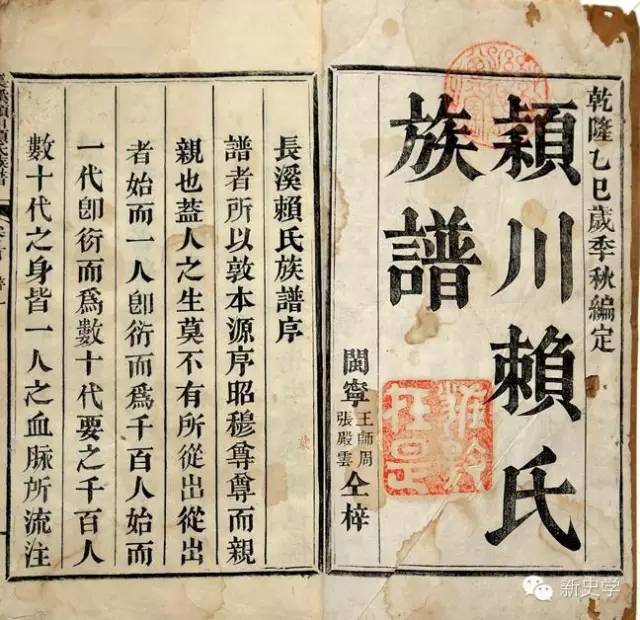 乾隆乙巳歲季秋編定
潁川賴氏
族譜
閩寧
王師周
張殿雲
仝梓
長溪賴氏族譜序
譜者所以敦本源序昭穆尊尊而親
親也蓋人之生莫不有所從出從出
者始而一人卽衍而爲千百人始而
一代卽衍而爲數十代要之千百人
數十代之身皆一人之血脉所流注
新史学